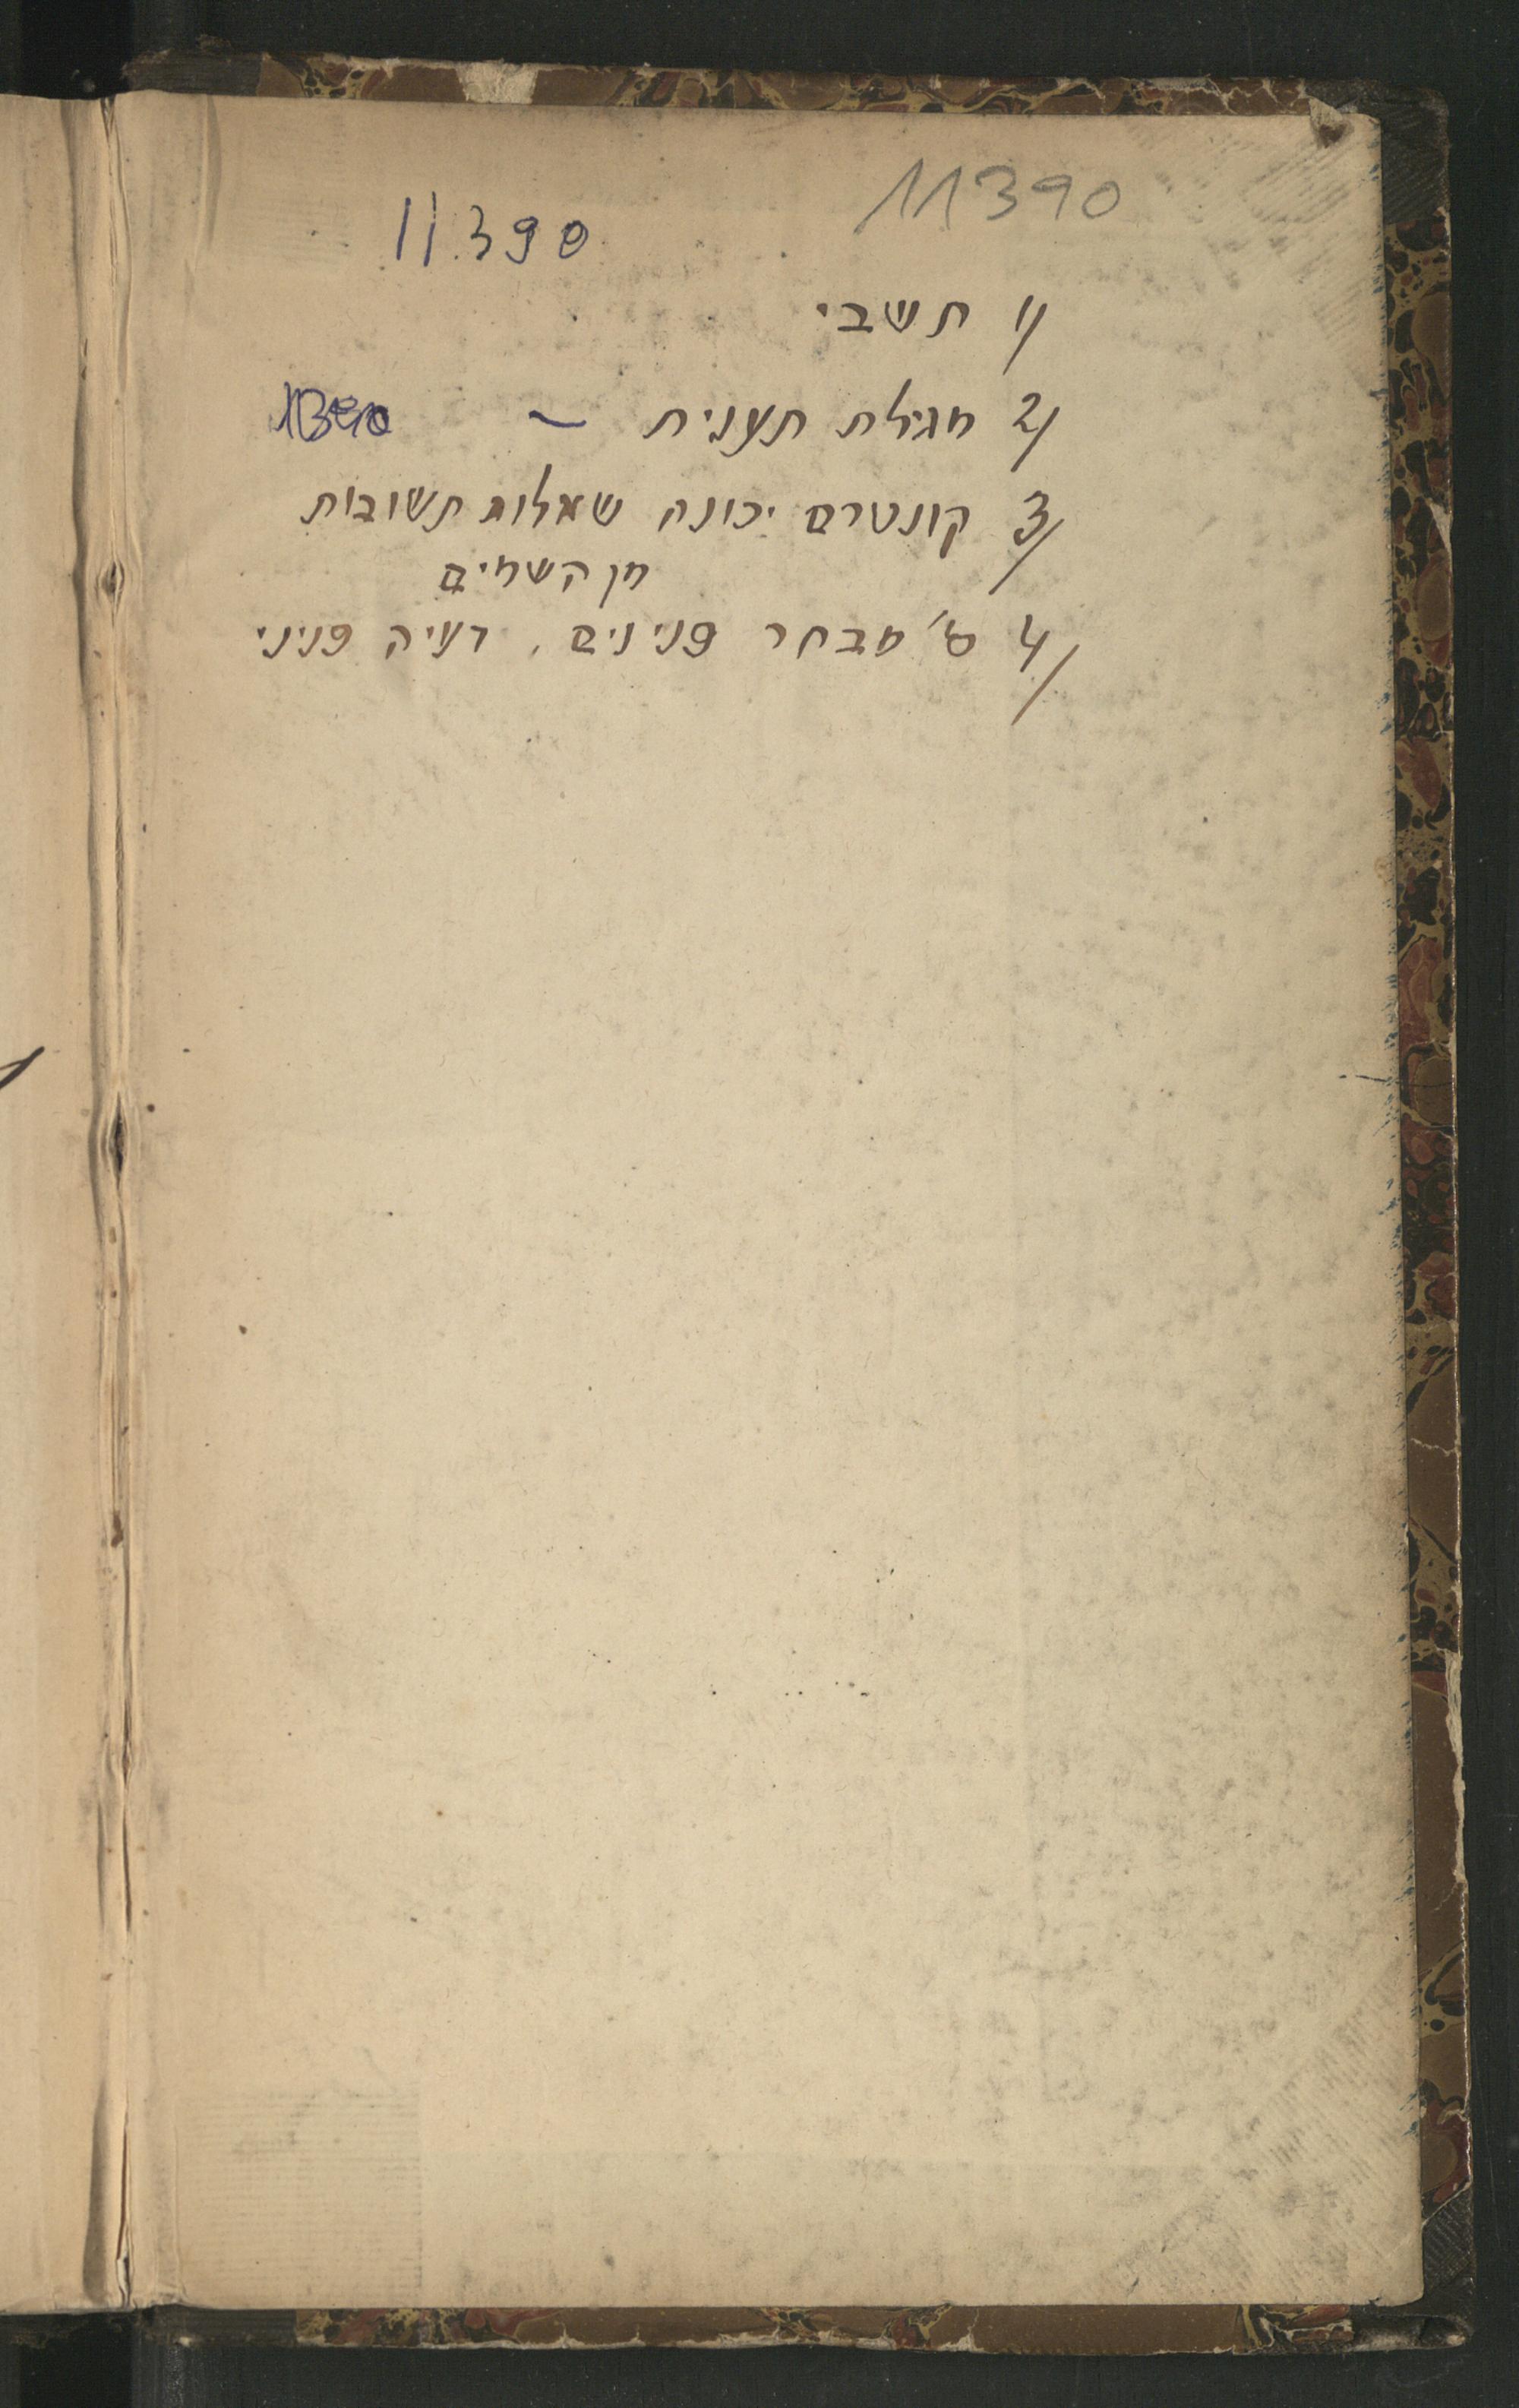 11390
11.390
1/ תשבי
2/ מגילת תענית ~
3/ קונטרס יכונה שאלות תשובות
מן השמים
4/ ס' מבחר פנינים, רעיה פניני